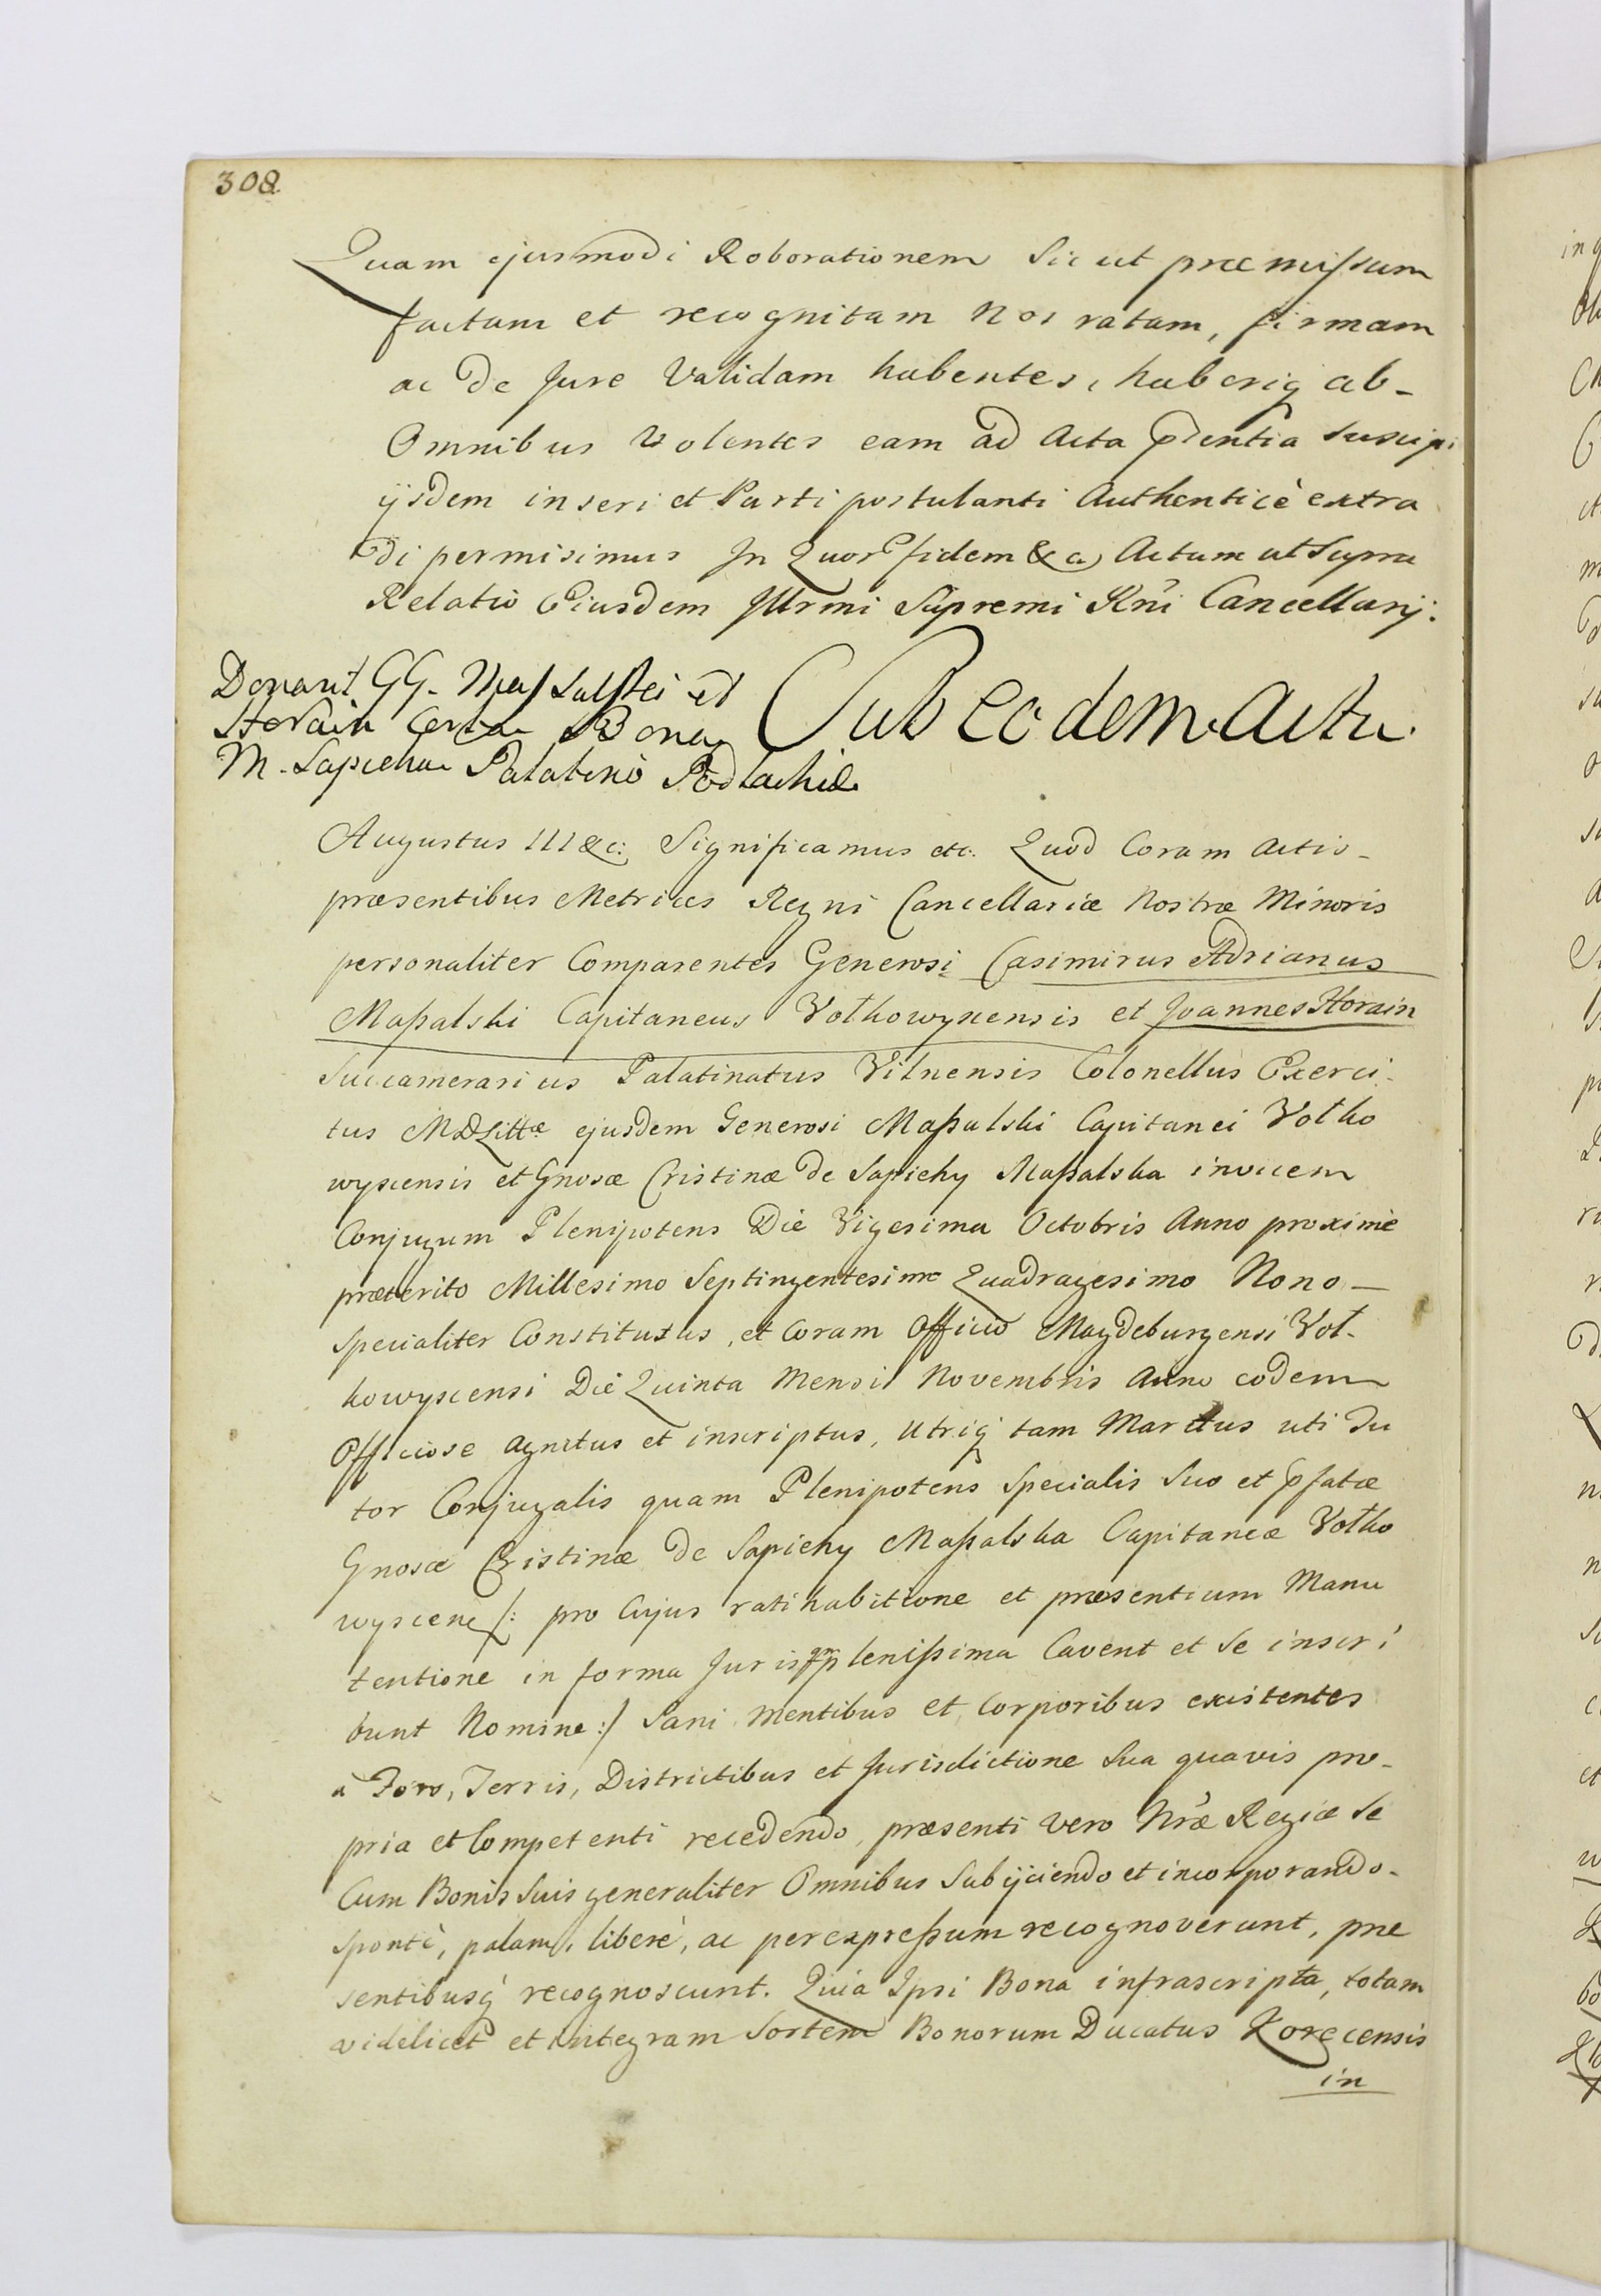 308.
Quam ejusmodi Roborationem Sicut præmissum
factam et recognitam Nos ratam, firmam
ac de Jure Validam habentes, haberiq ab-
Omnibus Volentes eam ad Acta pdentia Suscipi
ijsdem inseri et Parti postulanti Authenticè extra
di permisimus In Quor fidem &ca Actum ut Supra
Relatio Eiusdem Jllrmi Supremi Rni Cancellarij.
Donant GG. Massalskei et
Horain Certa Bona
M. Sapiehae Palatino Podlachiæ
Sub eodem Actu.
Augustus III &c: Significamus etc. Quod Coram Actis-
præsentibus Metrices Regni Cancellariæ Nostræ Minoris
personaliter Comparentes Generosi Casimirus Adrianus
Maßalski Capitaneus Wołkowyscensis et Joannes Horain
Succamerarius Palatinatus Vilnensis Colonellus Exerci-
tus MDLittæ ejusdem Generosi Maßalski Capitanei Wołko
wyscensis et Gnosæ Cristinæ de Sapiehy Maßalska invicem
Conjugum Plenipotens Die Vigesima Octobris Anno proximè
præterito Millesimo Septingentesimo Quadragesimo Nono-
Specialiter Constitutus, et Coram Officio Magdeburgensi Woł-
kowyscensi Die Quinta Mensis Novembris Anno eodem
Officiose agnitus et inscriptus, Utriq tam Maritus uti Du
tor Conjugalis quam Plenipotens Specialis Suo et pfatæ
Gnosæ Cristinæ de Sapiehy Maßalska Capitaneæ Wołko
wyscen /: pro Cujus ratihabitione et præsentium Manu
tentione in forma Juris qm plenißima Cavent et Se inscri
bunt Nomine :/ Sani Mentibus et Corporibus existentes
à Foro, Terris, Districtibus et Jurisdictione Sua quavis pro-
pria et Competenti recedendo, præsenti vero Nræ Regiæ Se
Cum Bonis Suis generaliter Omnibus Subijciendo et incorporando-
Spontè, palam, liberè, ac per expreßum recognoverunt, præ
sentibusq recognoscunt. Quia Ipsi Bona infrascripta, totam
videlicet et integram Sortem Bonorum Ducatus Korecensis
in